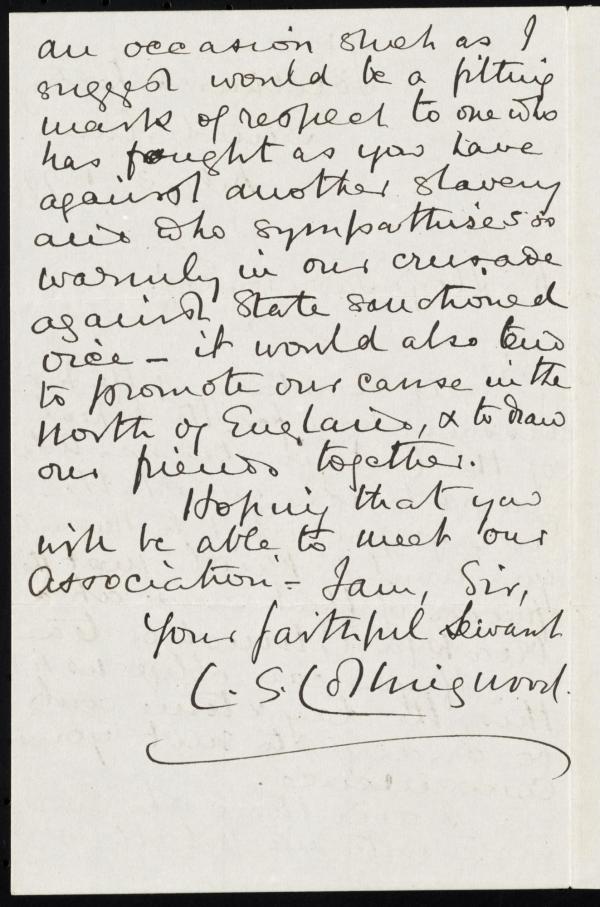 an occasion such as I
suggest would be a fitting
mark of respect to one who
has fought as you have
against another slavery
and who sympathises so
warmly in our crusade
against State sanctioned
vice – it would also tend
to promote our cause in the
North of England, & to draw
our friends together.
Hoping that you
will be able to meet our
Association – I am, Sir,
Your faithful Servant
C. S. Collingwood.